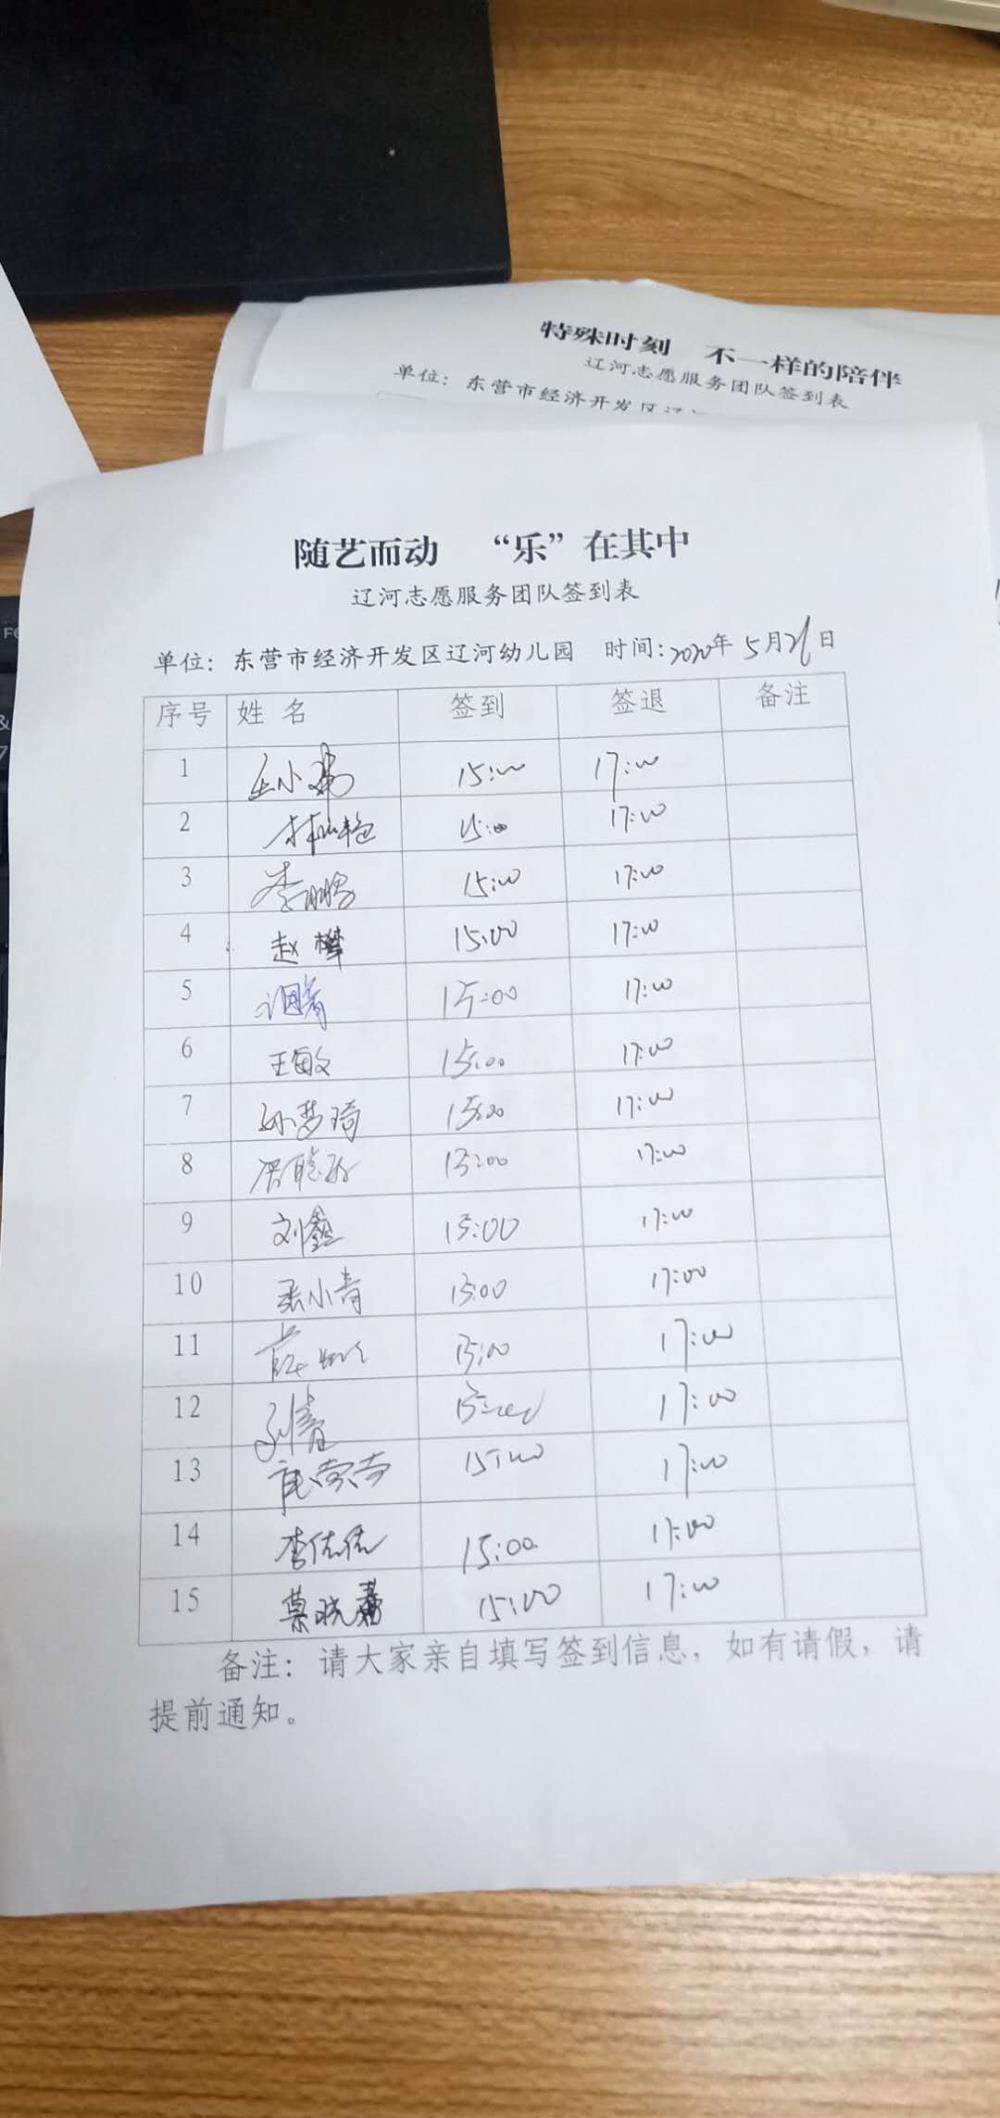 特殊时刻 不一样的陪伴
辽河志愿服务团队签到表
单位：东营市经济开发区辽
随艺而动 “乐”在其中
辽河志愿服务团队签到表
单位：东营市经济开发区辽河幼儿园 时间：2020年5月26日
序号 姓 名 签到 签退 备注
1 15:00 17:00
2 15:00 17:00
3 15:00 17:00
4 赵桦 15:00 17:00
5 15:00 17:00
6 王敏 15:00 17:00
7 孙梦琦 15:00 17:00
8 15:00 17:00
9 刘鑫 15:00 17:00
10 张小青 15:00 17:00
11 15:00 17:00
12 15:00 17:00
13 15:00 17:00
14 李倩倩 15:00 17:00
15 15:00 17:00
备注：请大家亲自填写签到信息，如有请假，请
提前通知。